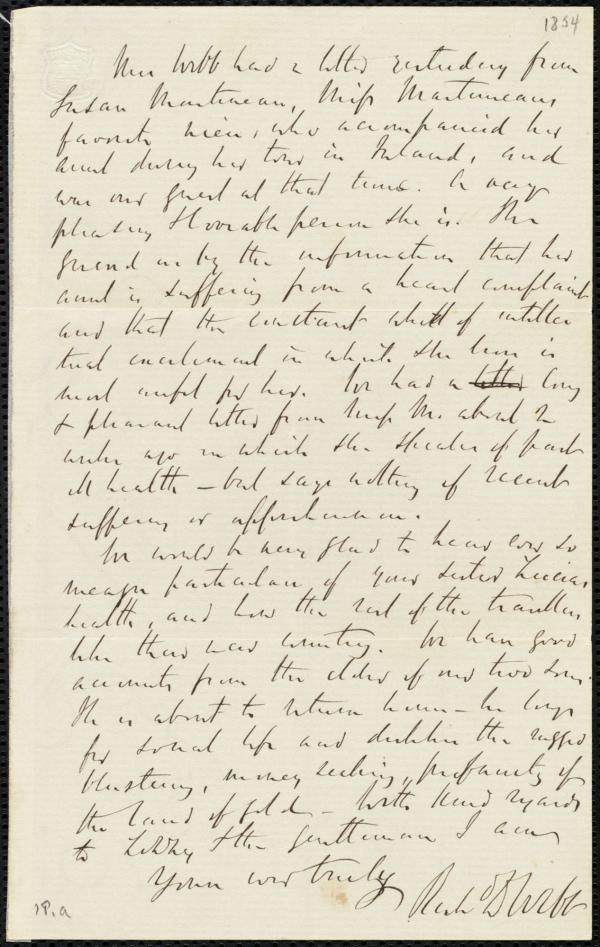 1854
Mrs Webb had a letter yesterday from
Susan Martineau, Miss Martineau's
favorite niece, who accompanied her
aunt during her tour in Ireland, and
was our guest at that time. A very
pleasing & lovable person she is. She
grieved us by the information that her
aunt is suffering from a heart complaint
and that the constant whirl of intellec
tual excitement in which she lives is
most awful for her. We had a letter long
& pleasant letter from Miss M. about 2
weeks ago in which she speaks of past
ill health – but says nothing of recent
suffering or apprehension.
We would be very glad to hear ever so
meagre particulars of your sister Lucia's
health, and how the rest of the travellers
like their new country. We have good
accounts from the elder of our two sons.
He is about to return home – he longs
for social life and dislikes the rugged
blustering, money seeking, profanity of
the land of gold – With kind regards
to & the gentleman I am
Yours very truly
Richd D Webb
18.a